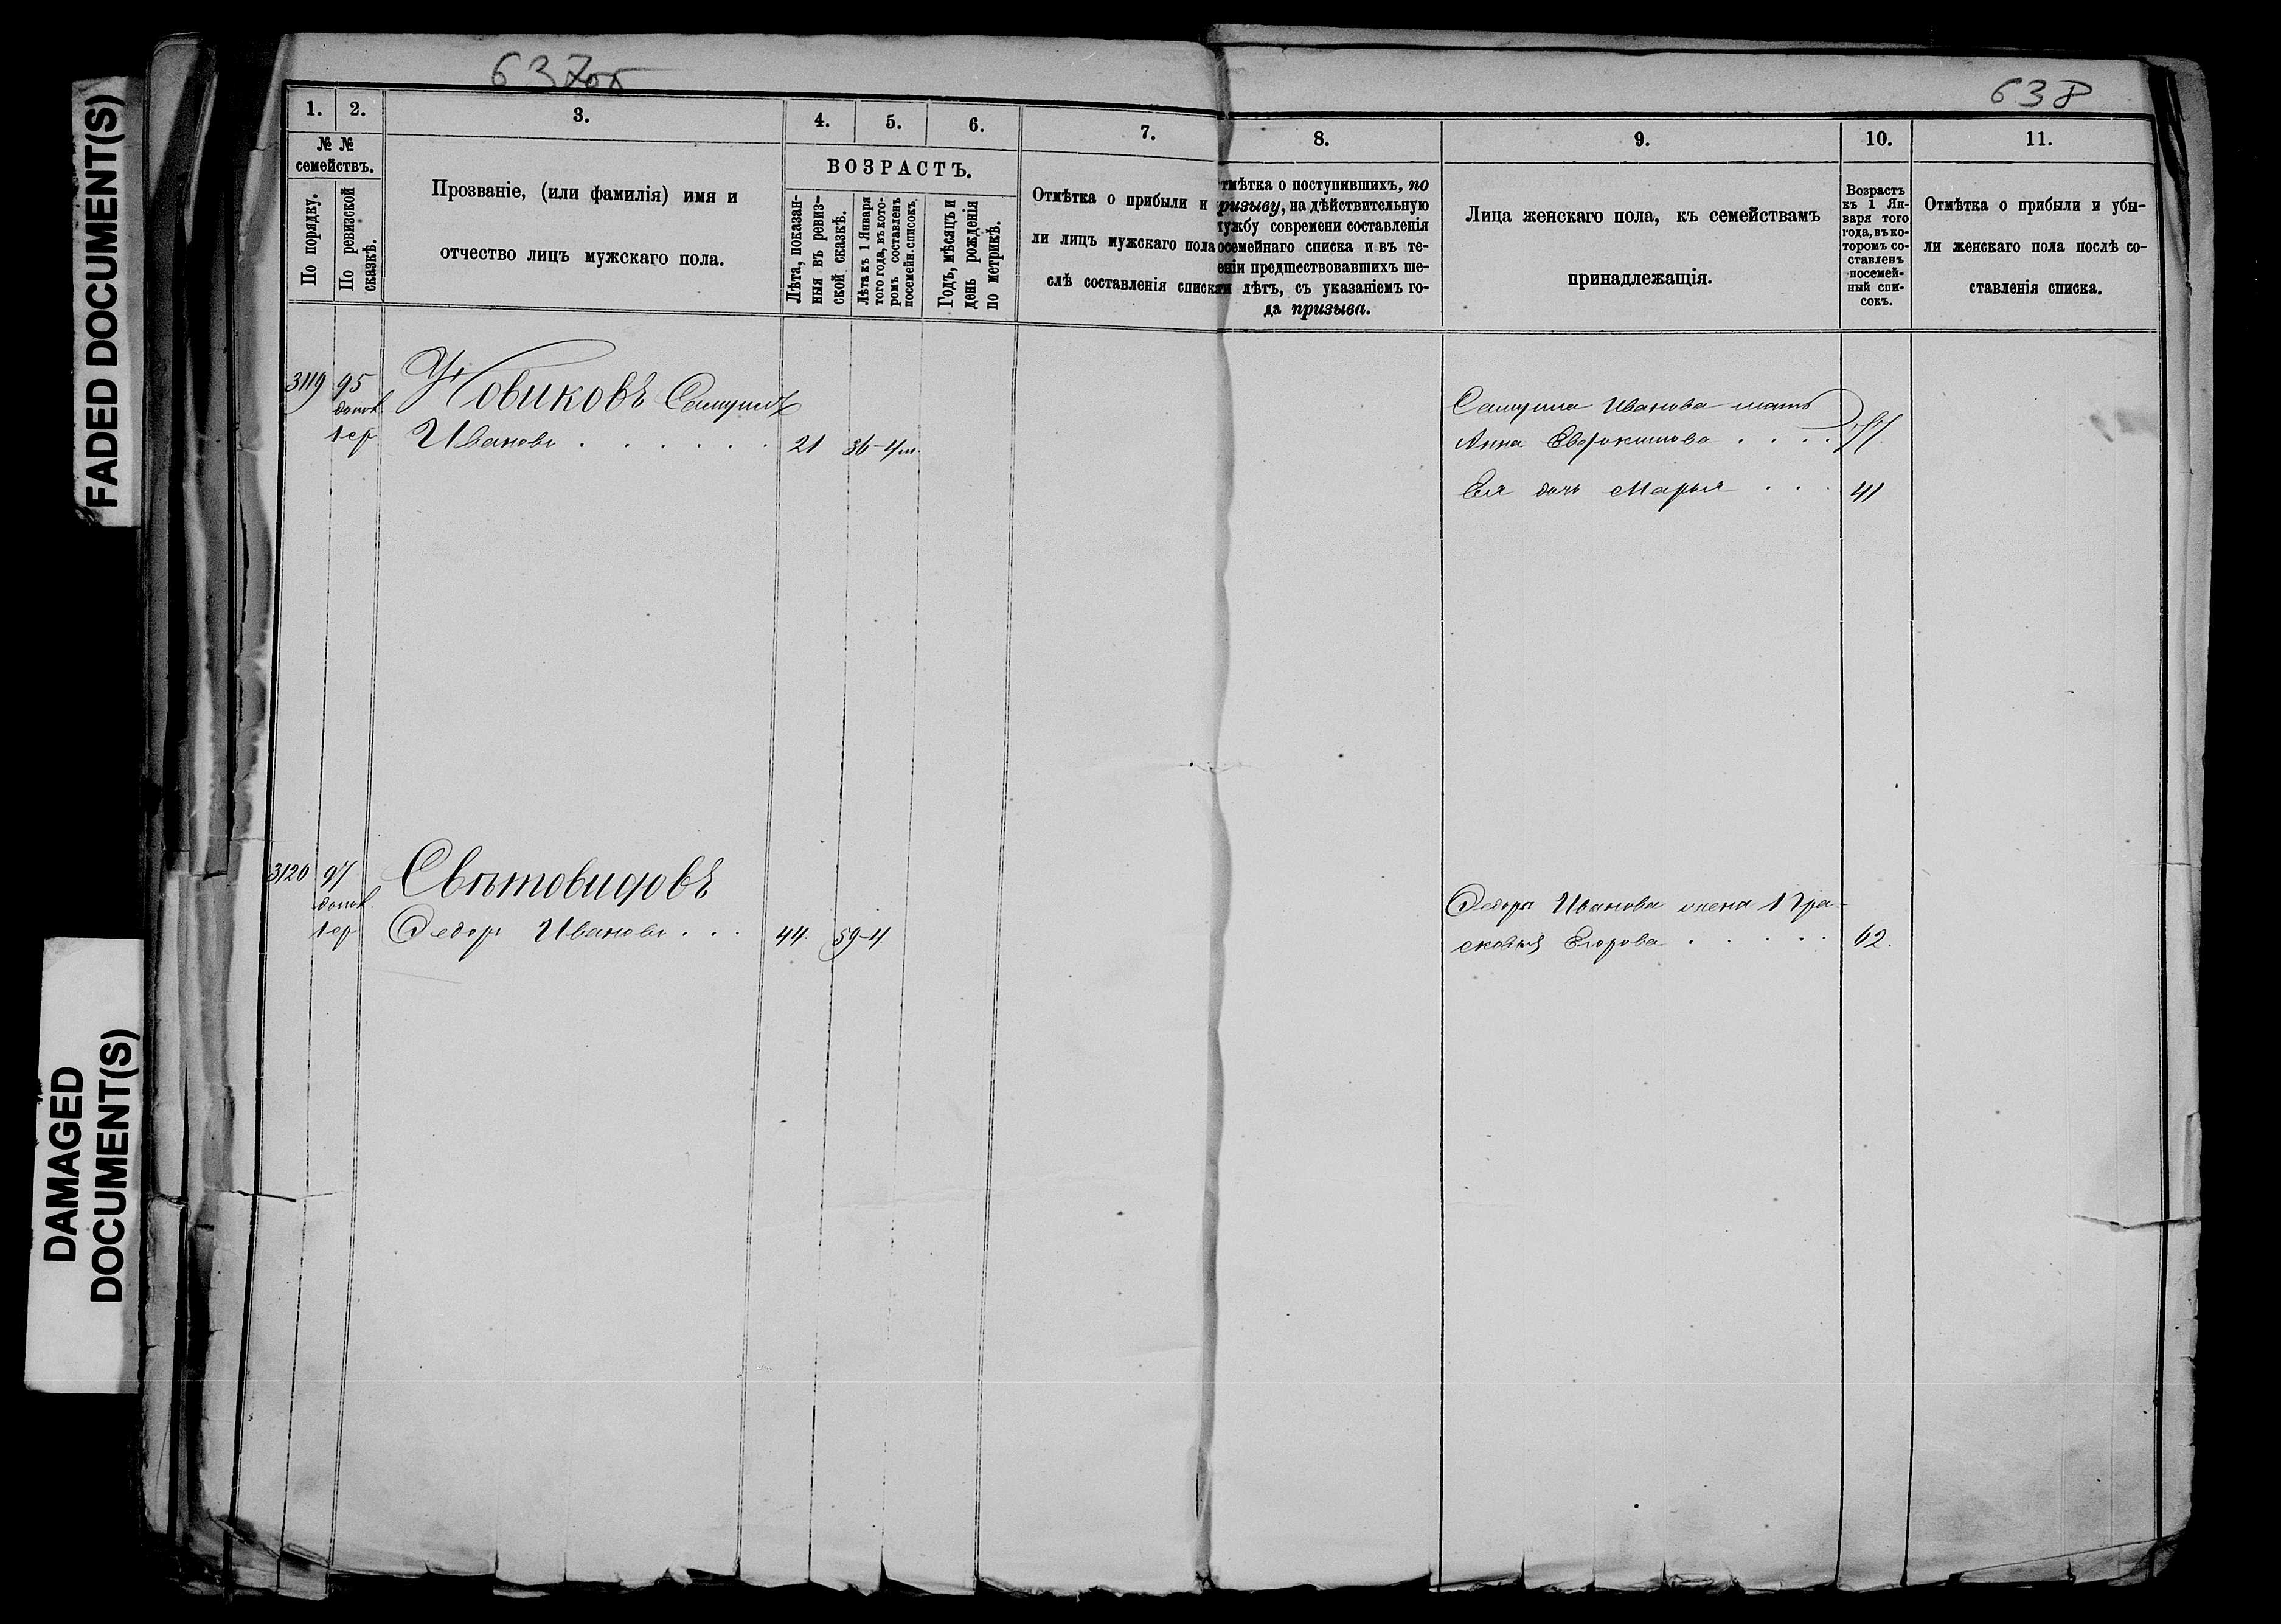 FADED DOCUMENT(S)
DAMAGED
DOCUMENT(S)
637об
638
1.
2.
3.
4.
5.
6.
7.
8.
9.
10.
11.
№ №
семействъ.
По порядку.
По ревизской
сказкѣ.
Прозваніе, (или фамилія) имя и
отчество лицъ мужскаго пола.
ВОЗРАСТЪ.
Лѣта, показан-
ныя въ ревиз-
ской сказкѣ.
Лѣта къ 1 Января
того года, въ кото-
ромъ составленъ
посемейн. списокъ.
Годъ, мѣсяцъ и
день рожденія
по метрикѣ.
Отмѣтка о прибыли и
ли лицъ мужскаго пола
слѣ составленія списка
тмѣтка о поступившихъ, по
ризыву, на дѣйствительную
лужбу современи составленія
осемейнаго списка и въ те-
еніи предшествовавшихъ ше-
ти лѣтъ, съ указаніемъ го-
да призыва.
Лица женскаго пола, къ семействамъ
принадлежащія.
Возрастъ
къ 1 Ян-
варя того
года, въ ко-
торомъ со-
ставленъ
посемей-
ный спи-
сокъ.
Отмѣтка о прибыли и убы-
ли женскаго пола послѣ со-
ставленія списка.
3119 95 Новиковъ Самуилъ
допол.
1 ср Ивановъ . . . . . . 21 36-4м.
Самуила Иванова мать
Анна Евдокимова . . . .
Ея дочь Марья . . . 41
3120 97 Свѣтовидовъ
допол.
1 ср Ѳедоръ Ивановъ . . . 44. 59-4
Ѳедора Иванова жена Пра-
сковья Егорова . . . . . 62.